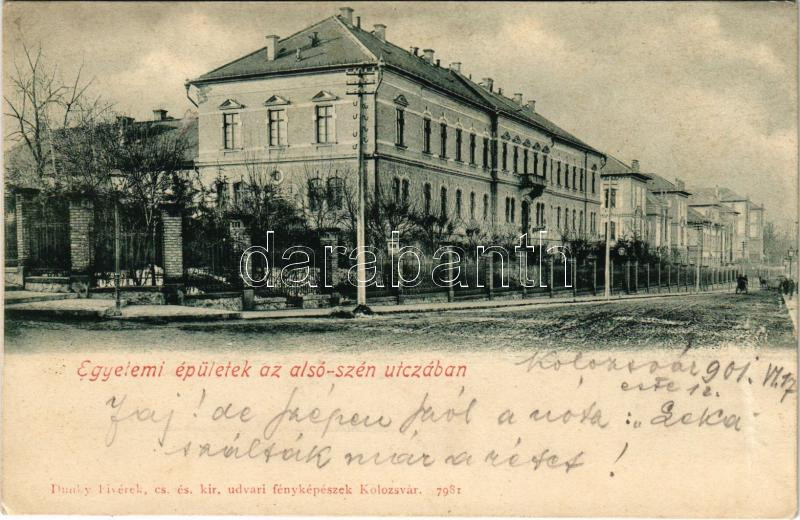 darabanth
Egyetemi épületek az alsó-szén utczában
Kolozsvár 901. VI. 17
este 12.
Jaj! de szépen szól a nóta:
szálták már a rétet!
Dunky Fivérek, cs. és. kir. udvari fényképészek Kolozsvár. 7981